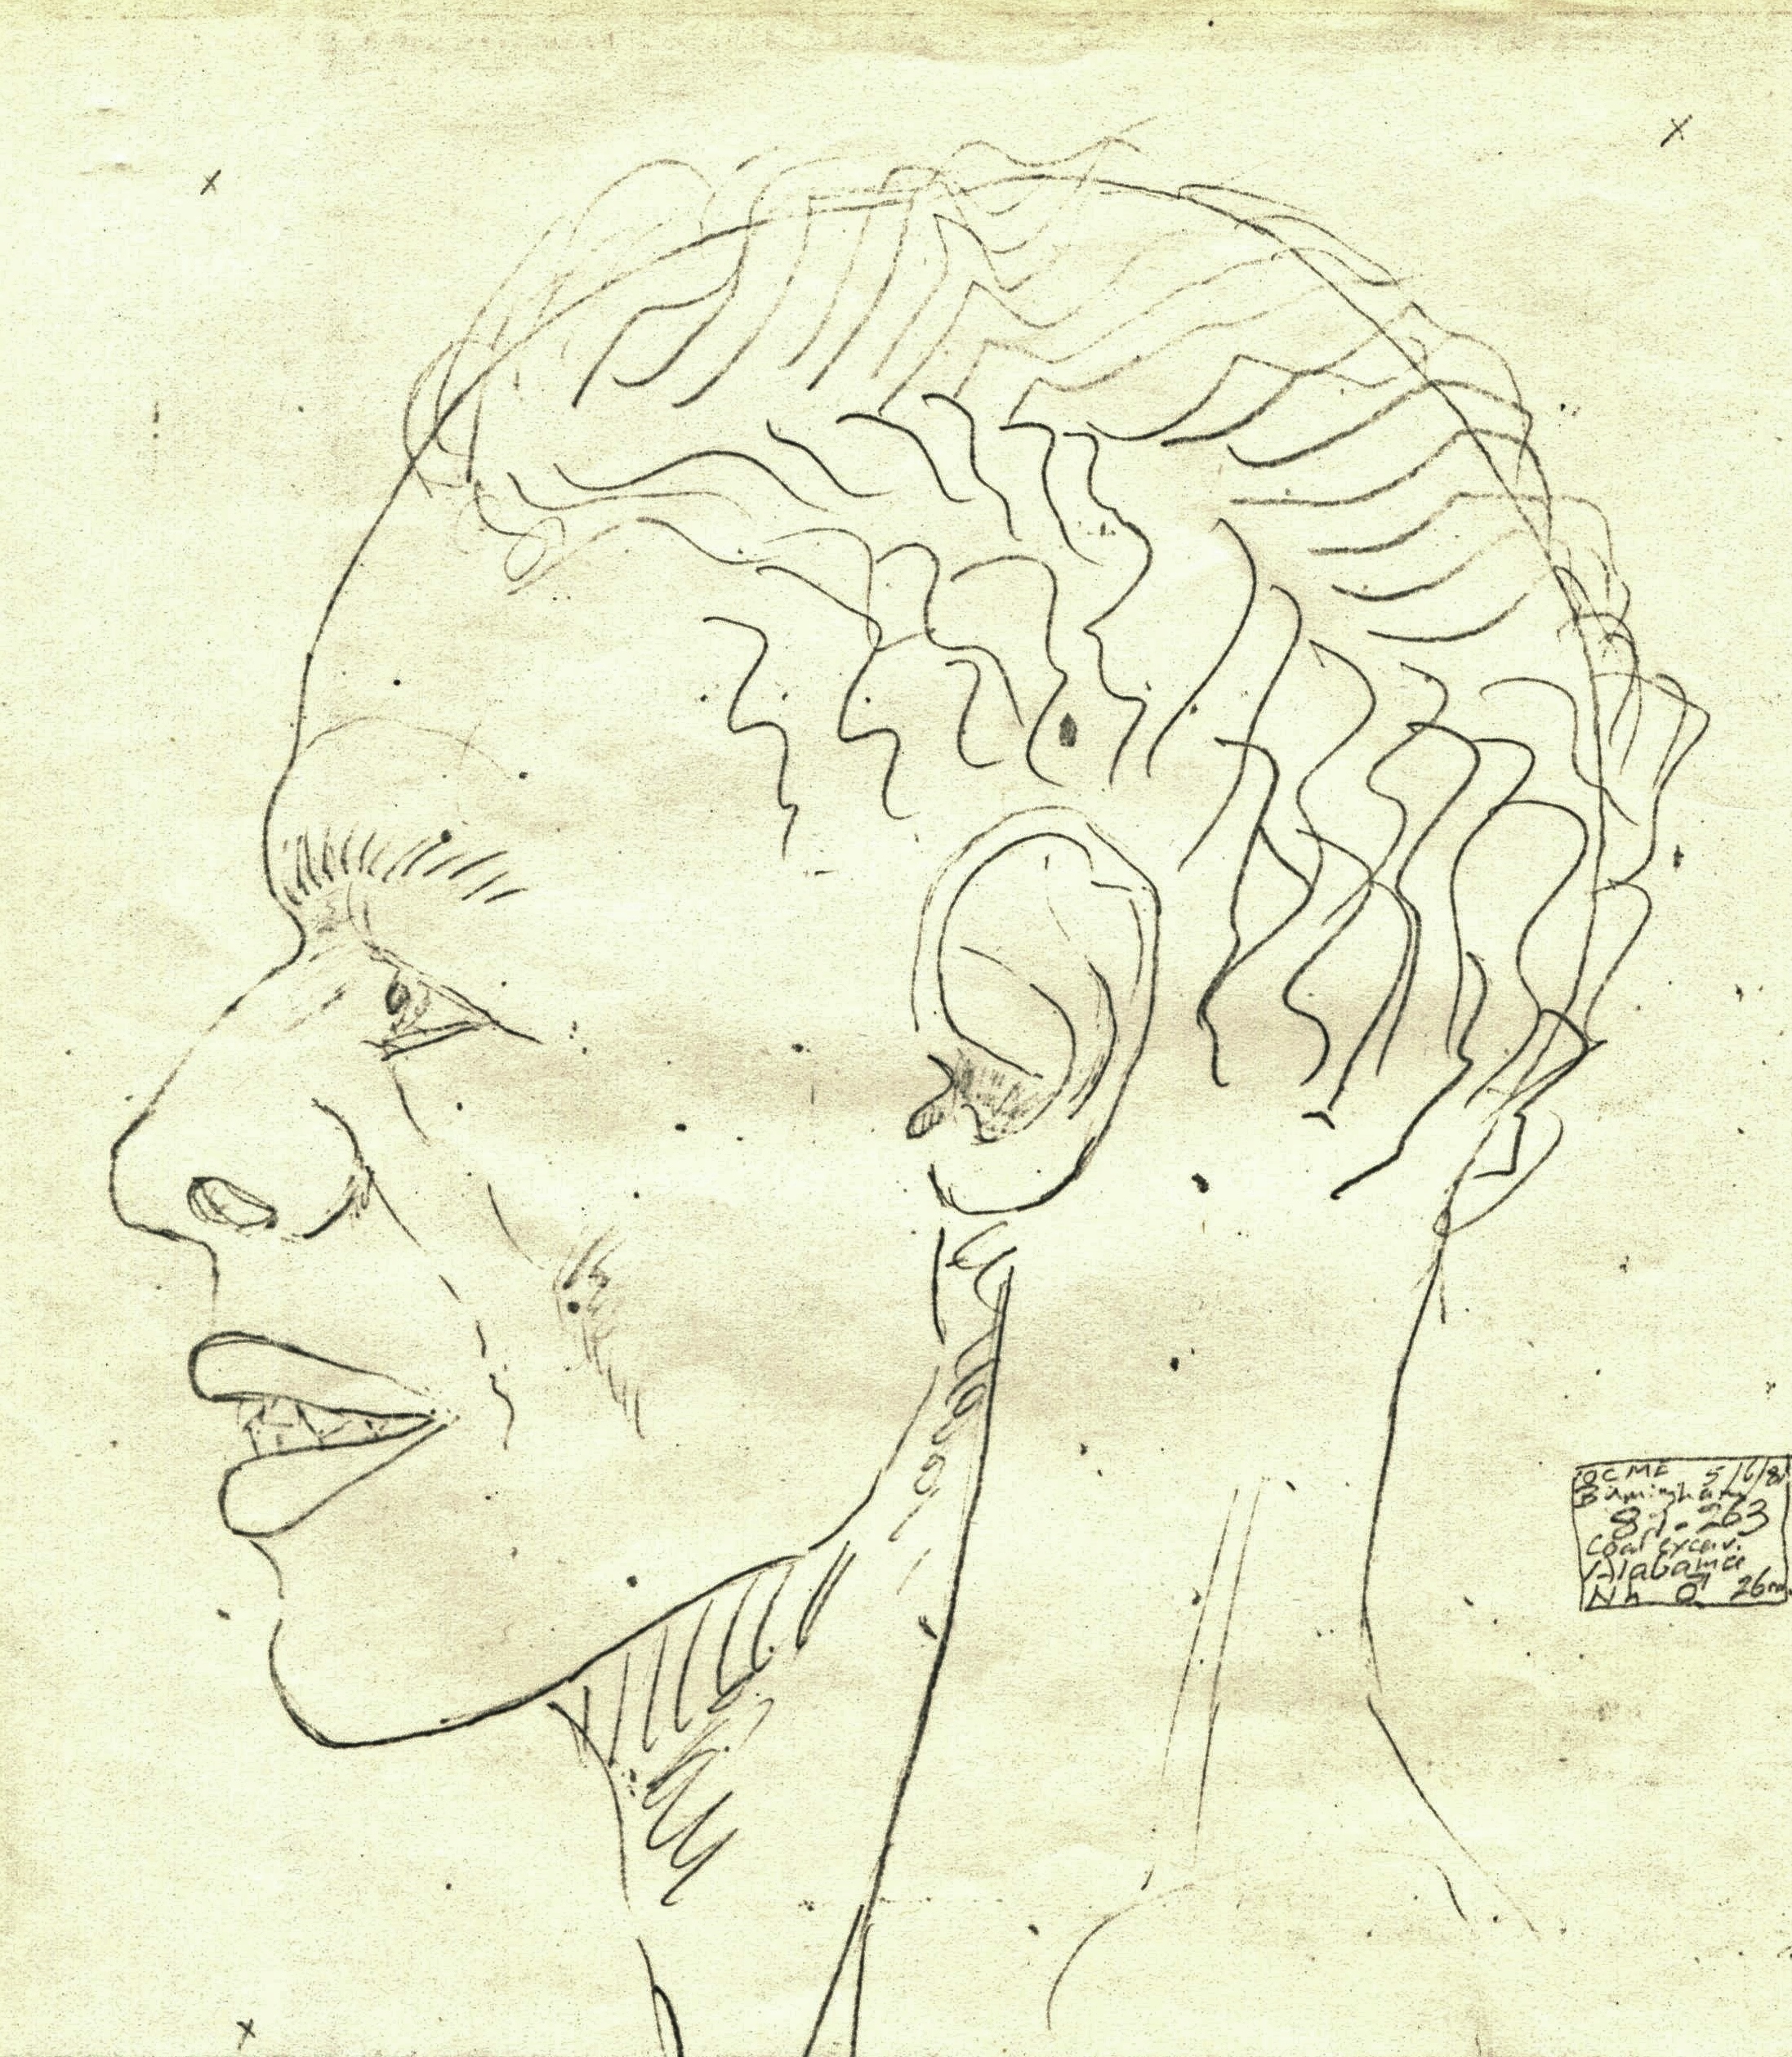 OCME 5/6/81
Birmingham
81-263
Coal excav.
Alabama